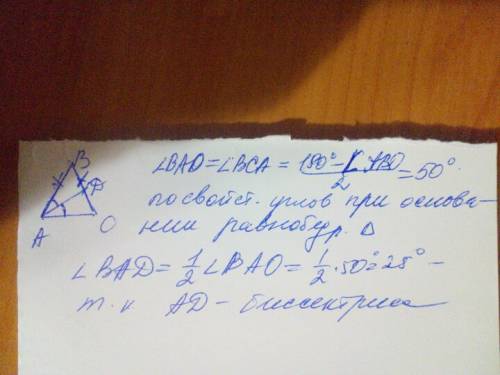 B
D
A
O
∠BAO = ∠BCA = (180° - ∠ABO)/2 = 50°
по свойст. углов при основа-
нии равнобедр. Δ
∠BAD = 1/2 ∠BAO = 1/2 · 50° = 25° -
т.к. AD - биссектриса